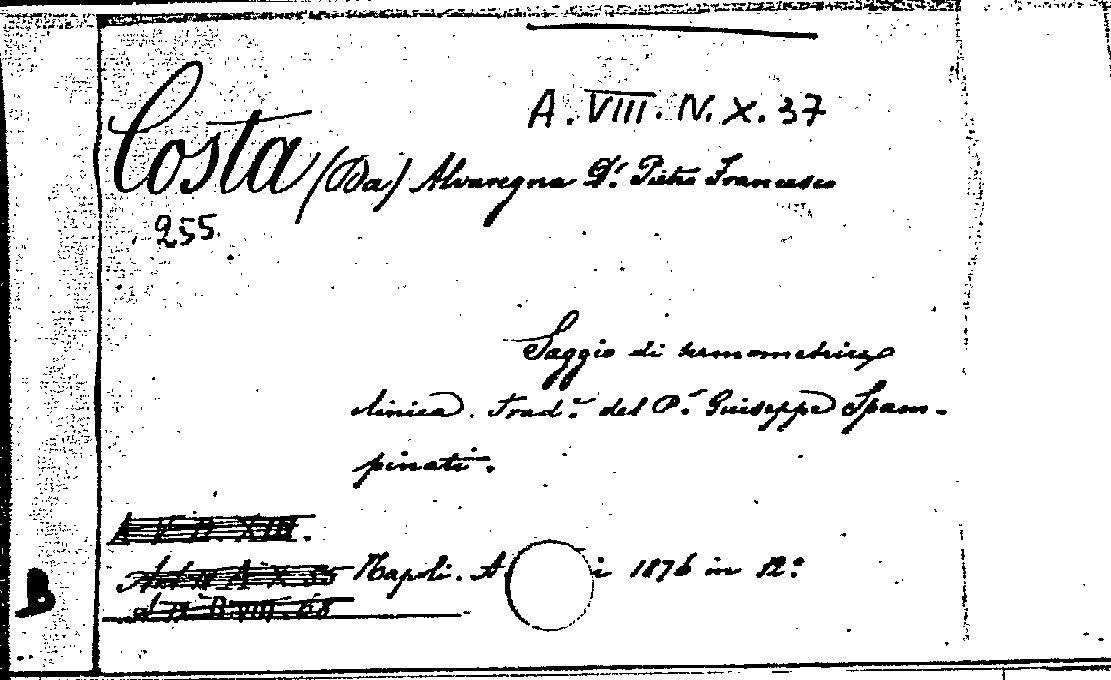 A. VIII. IV. X. 37
Costa (Da) Alvaregna Dr. Pietro Francesco
255.
Saggio di termometrica
clinica. Trad.e del Pr. Giuseppe Spam-
pinati.
Napoli. 1876 in 12.°
B